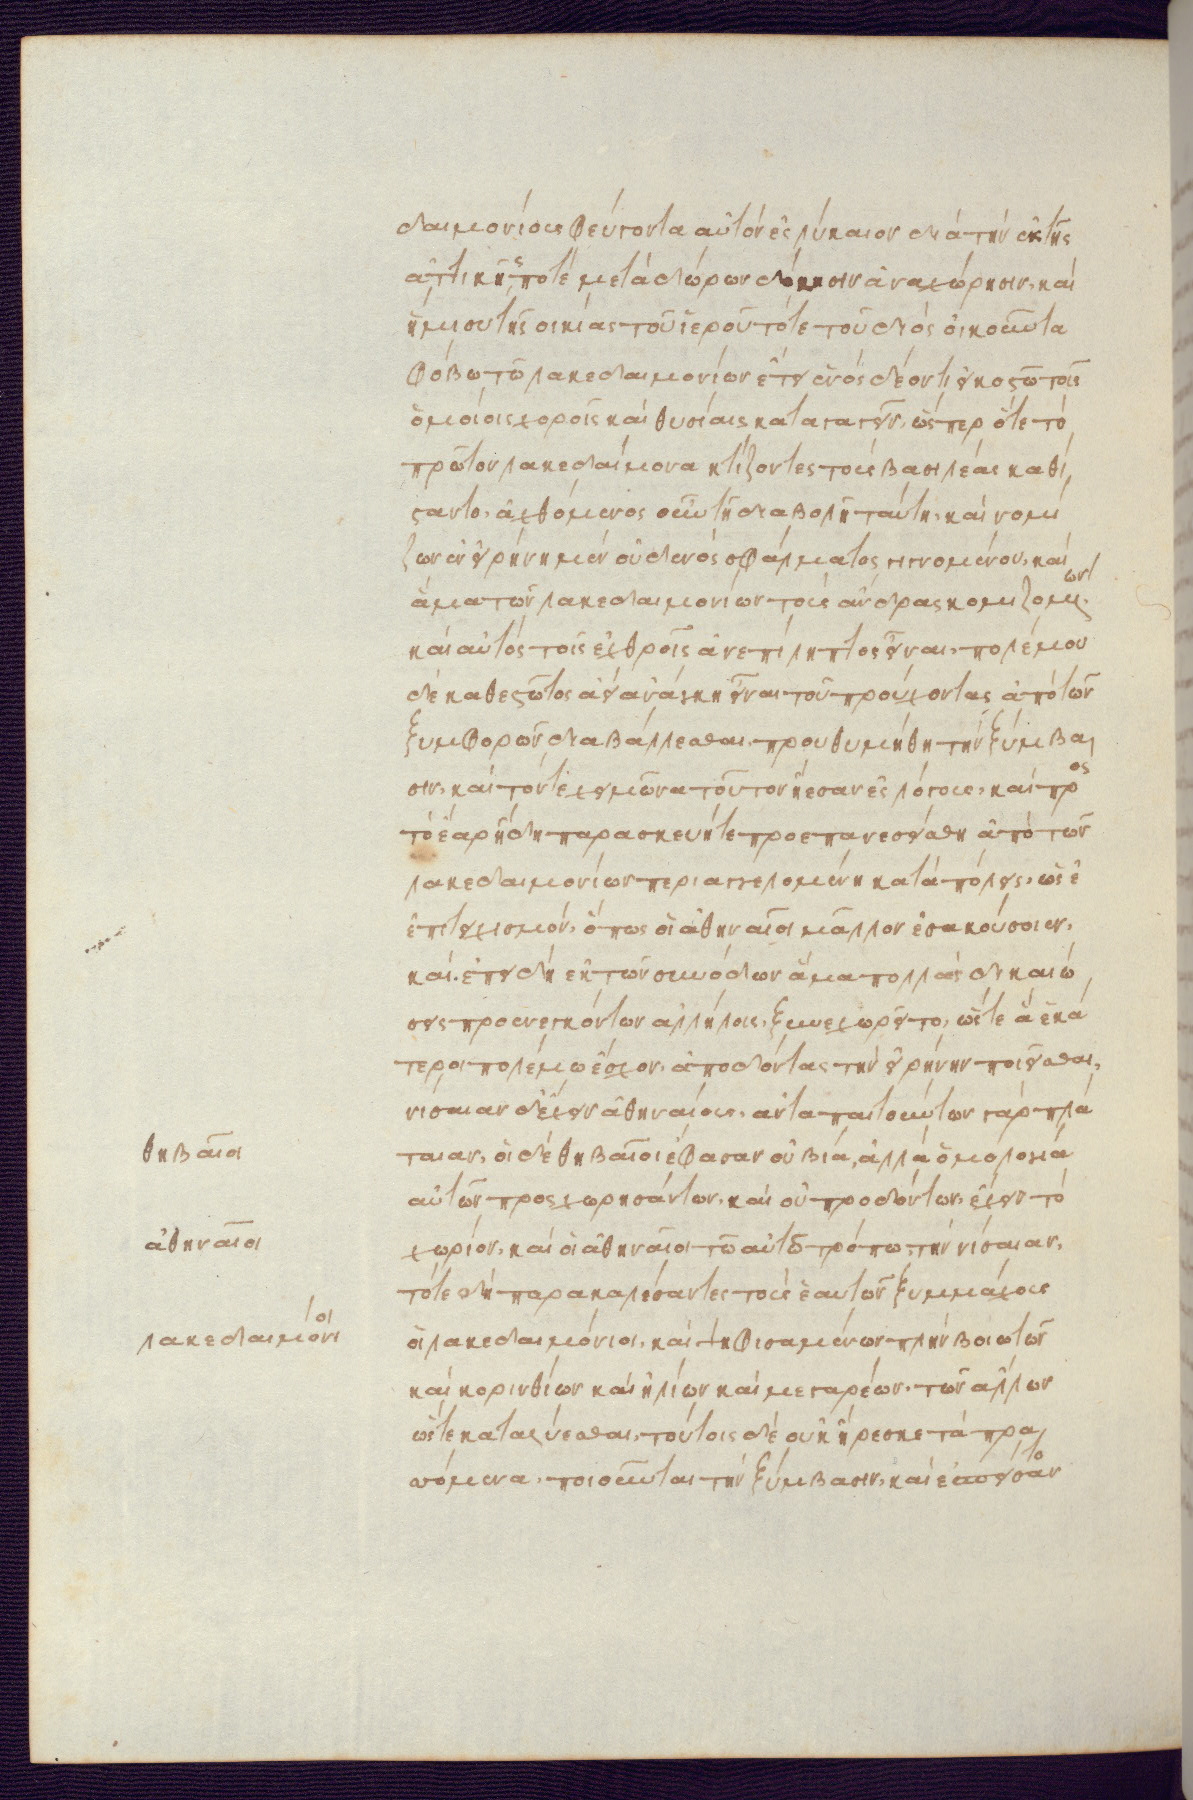 δαιμονίους φεύγοντα αὐτὸν ἐς λύκαιον διὰ τὴν ἐκ τῆς
ἀττικῆς ποτὲ μετὰ δώρων δόκησιν ἀναχώρησιν, καὶ
ἥμισυ τῆς οἰκίας τοῦ ἱεροῦ τότε τοῦ διὸς οἰκοῦντα
φόβω τῶ λακεδαιμονίων ἔτει ἑνὸς δέοντι εἰκοστῶ τοῖς
ὁμοίοις χοροῖς καὶ θυσίαις καταγαγεῖν, ὥσπερ ὅτε τὸ
πρῶτον λακεδαίμονα κτίζοντες τοὺς βασιλέας καθί
σαντο, ἀχθόμενος οὖν τῆ διαβολῆ ταύτη, καὶ νομί
ζων ἐν εἰρήνη μὲν οὐδενὸς σφάλματος γιγνομένου, καὶ
ἅμα τῶν λακεδαιμονίων τοὺς ἄνδρας κομιζομένων
καὶ αὐτὸς τοῖς ἐχθροῖς ἀνεπίληπτος εἶναι, πολέμου
δὲ καθεστῶτος ἀεὶ ἀνάγκη εἶναι τοῦ προύχοντας ἀπὸ τῶν
ξυμφορῶν διαβάλλεσθαι, προυθυμήθη τὴν ξύμβα
σιν, καὶ τόν τε χειμῶνα τοῦτον ἤεσαν ἐς λόγους, καὶ πρὸς
τὸ ἔαρ ἤδη παρασκευή τε προεπανεσείσθη ἀπὸ τῶν
λακεδαιμονίων περιαγγελομένη κατὰ πόλεις, ὡς ἐ
ἐπιτειχισμόν, ὅπως οἱ ἀθηναῖοι μᾶλλον ἐσακούσοιεν,
καὶ ἐπειδὴ ἐκ τῶν συνόδων ἅμα πολλὰς δικαιώ
σεις προενεγκόντων ἀλλήλοις, ξυνεχωρεῖτο, ὥστε ἃ ἑκά
τεροι πολέμω ἔσχον, ἀποδόντας τὴν εἰρήνην ποιεῖσθαι,
νίσαιαν δ' ἔχειν ἀθηναίους, ἀνταπαιτούντων γὰρ πλά
ταιαν, οἱ δὲ θηβαῖοι ἔφασαν οὐ βία, ἀλλὰ ὁμολογία
αὐτῶν προσχωρησάντων, καὶ οὐ προδόντων, ἔχειν τὸ
χωρίον, καὶ οἱ ἀθηναῖοι τῶ αὐτῶ τρόπω τὴν νίσαιαν,
τότε δὴ παρακαλέσαντες τοὺς ἑαυτῶν ξυμμάχους
οἱ λακεδαιμόνιοι, καὶ ψηφισαμένων πλὴν βοιωτῶν
καὶ κορινθίων καὶ ἠλίων καὶ μεγαρέων, τῶν ἄλλων
ὥστε καταλύεσθαι, τούτοις δὲ οὐκ ἤρεσκε τὰ πρα
σσόμενα, ποιοῦνται τὴν ξύμβασιν, καὶ ἐσπείσαντο
θηβαῖοι
ἀθηναῖοι
λακεδαιμόνιοι